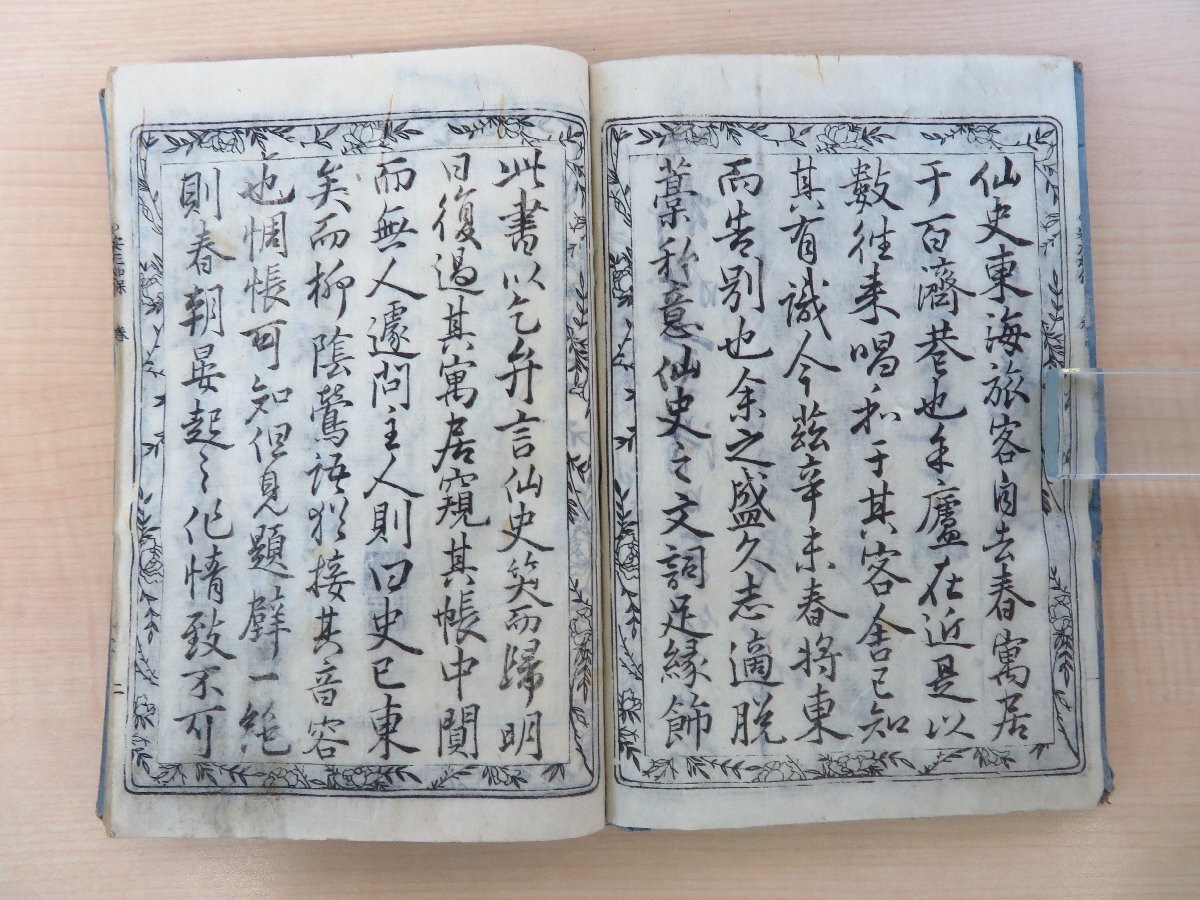 仙史東海旅客自去春寓居
于百濟巷也余廬在近是以
數往来唱和于其客舎已知
其有識今茲辛未春将東
而告别也余之盛久志適脱
藁称意仙史之文詞足緣飾
此書以乞弁言仙史笑而歸明
日復過其寓居窺其帳中闃
而無人遽問主人則曰史已東
矣而柳陰鶯語猶接其音容
也惆悵可知但見題壁一絶
則春朝晏起之作情致不可
春
二